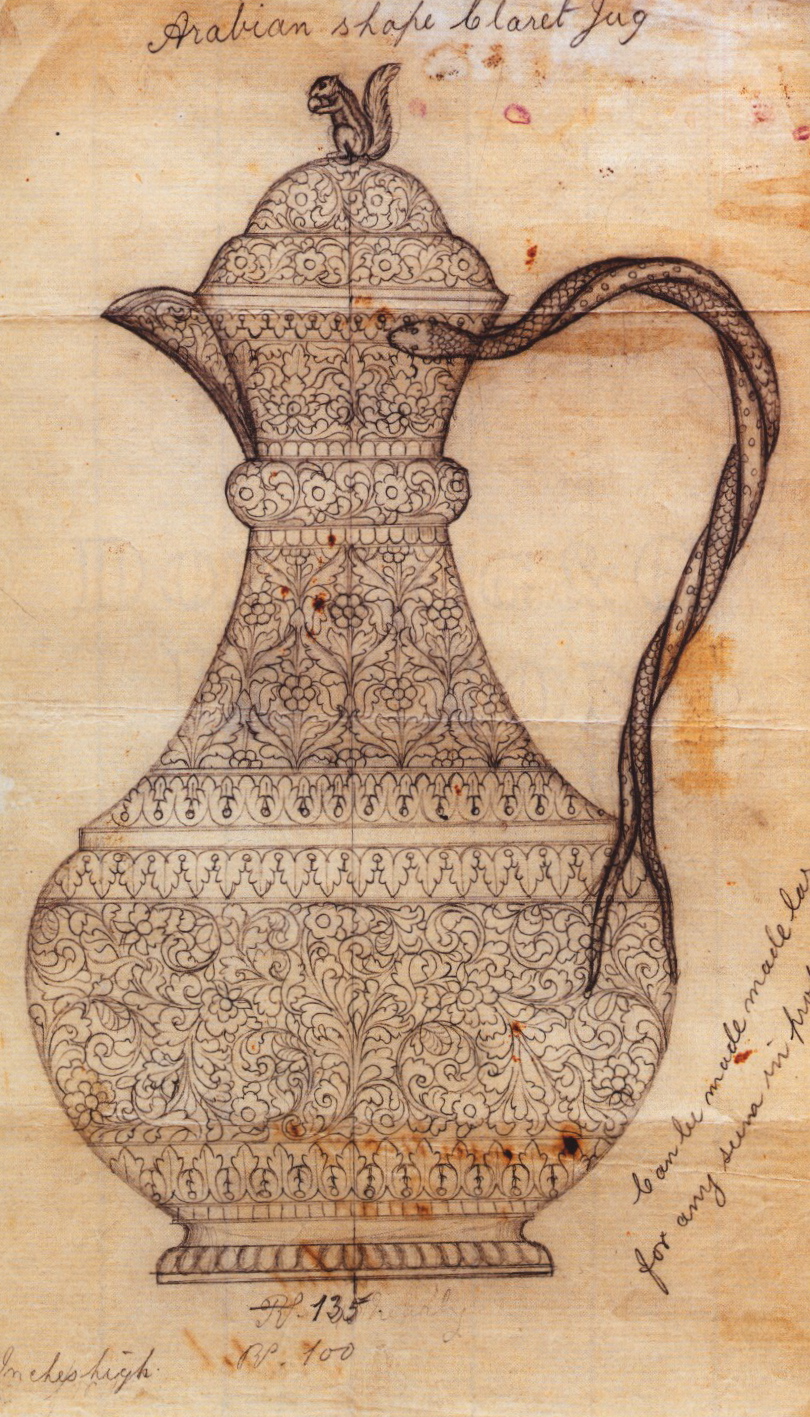 Arabian shape Claret Jug
Can be made made
for any seem in
Rs. 135
Rs. 100
Inches high.